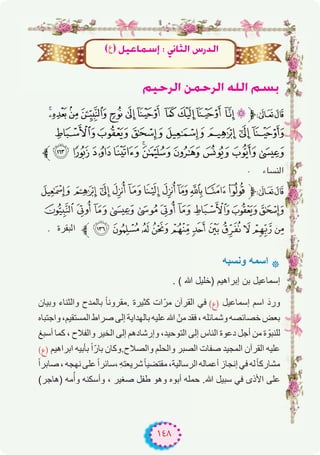 الدرس الثاني : إسماعيل (ع)
بسم الله الرحمن الرحيم
قَالَ تَعَالَى ﴿ إِنَّا أَوْحَيْنَا إِلَيْكَ كَمَا أَوْحَيْنَا إِلَى نُوحٍ وَالنَّبِيِّينَ مِنْ بَعْدِهِ ۚ
وَأَوْحَيْنَا إِلَى إِبْرَاهِيمَ وَإِسْمَاعِيلَ وَإِسْحَاقَ وَيَعْقُوبَ وَالْأَسْبَاطِ
وَعِيسَى وَأَيُّوبَ وَيُونُسَ وَهَارُونَ وَسُلَيْمَانَ ۚ وَآتَيْنَا دَاوُودَ زَبُورًا ﴿١٦٣﴾ ﴾
النساء .
قَالَ تَعَالَى ﴿ قُولُوا آمَنَّا بِاللَّهِ وَمَا أُنْزِلَ إِلَيْنَا وَمَا أُنْزِلَ إِلَى إِبْرَاهِيمَ وَإِسْمَاعِيلَ
وَإِسْحَاقَ وَيَعْقُوبَ وَالْأَسْبَاطِ وَمَا أُوتِيَ مُوسَى وَعِيسَى وَمَا أُوتِيَ النَّبِيُّونَ
مِنْ رَبِّهِمْ لَا نُفَرِّقُ بَيْنَ أَحَدٍ مِنْهُمْ وَنَحْنُ لَهُ مُسْلِمُونَ ﴿١٣٦﴾ ﴾ البقرة .
* اسمه ونسبه
إسماعيل بن إبراهيم (خليل الله ) .
وردَ اسم إسماعيل (ع) في القرآن مرّات كثيرة ,مقروناً بالمدح والثناء وبيان
بعض خصائصه وشمائله ، فقد منّ الله عليه بالهداية إلى صراط المستقيم، واجتباه
للنبوّة من أجل دعوة الناس إلى التوحيد، وإرشادهم إلى الخير والفلاح ، كما أسبغ
عليه القرآن المجيد صفات الصبر والحلم والصلاح.وكان بارّاً بأبيه ابراهيم (ع)
مشاركاً له في إنجاز أعماله الرسالية، مقتضياً شريعتهِ ،سائراً على نهجه ، صابراً
على الأذى في سبيل الله. حمله أبوه وهو طفل صغير ، وأسكنه وأمه (هاجر)
١٤٨